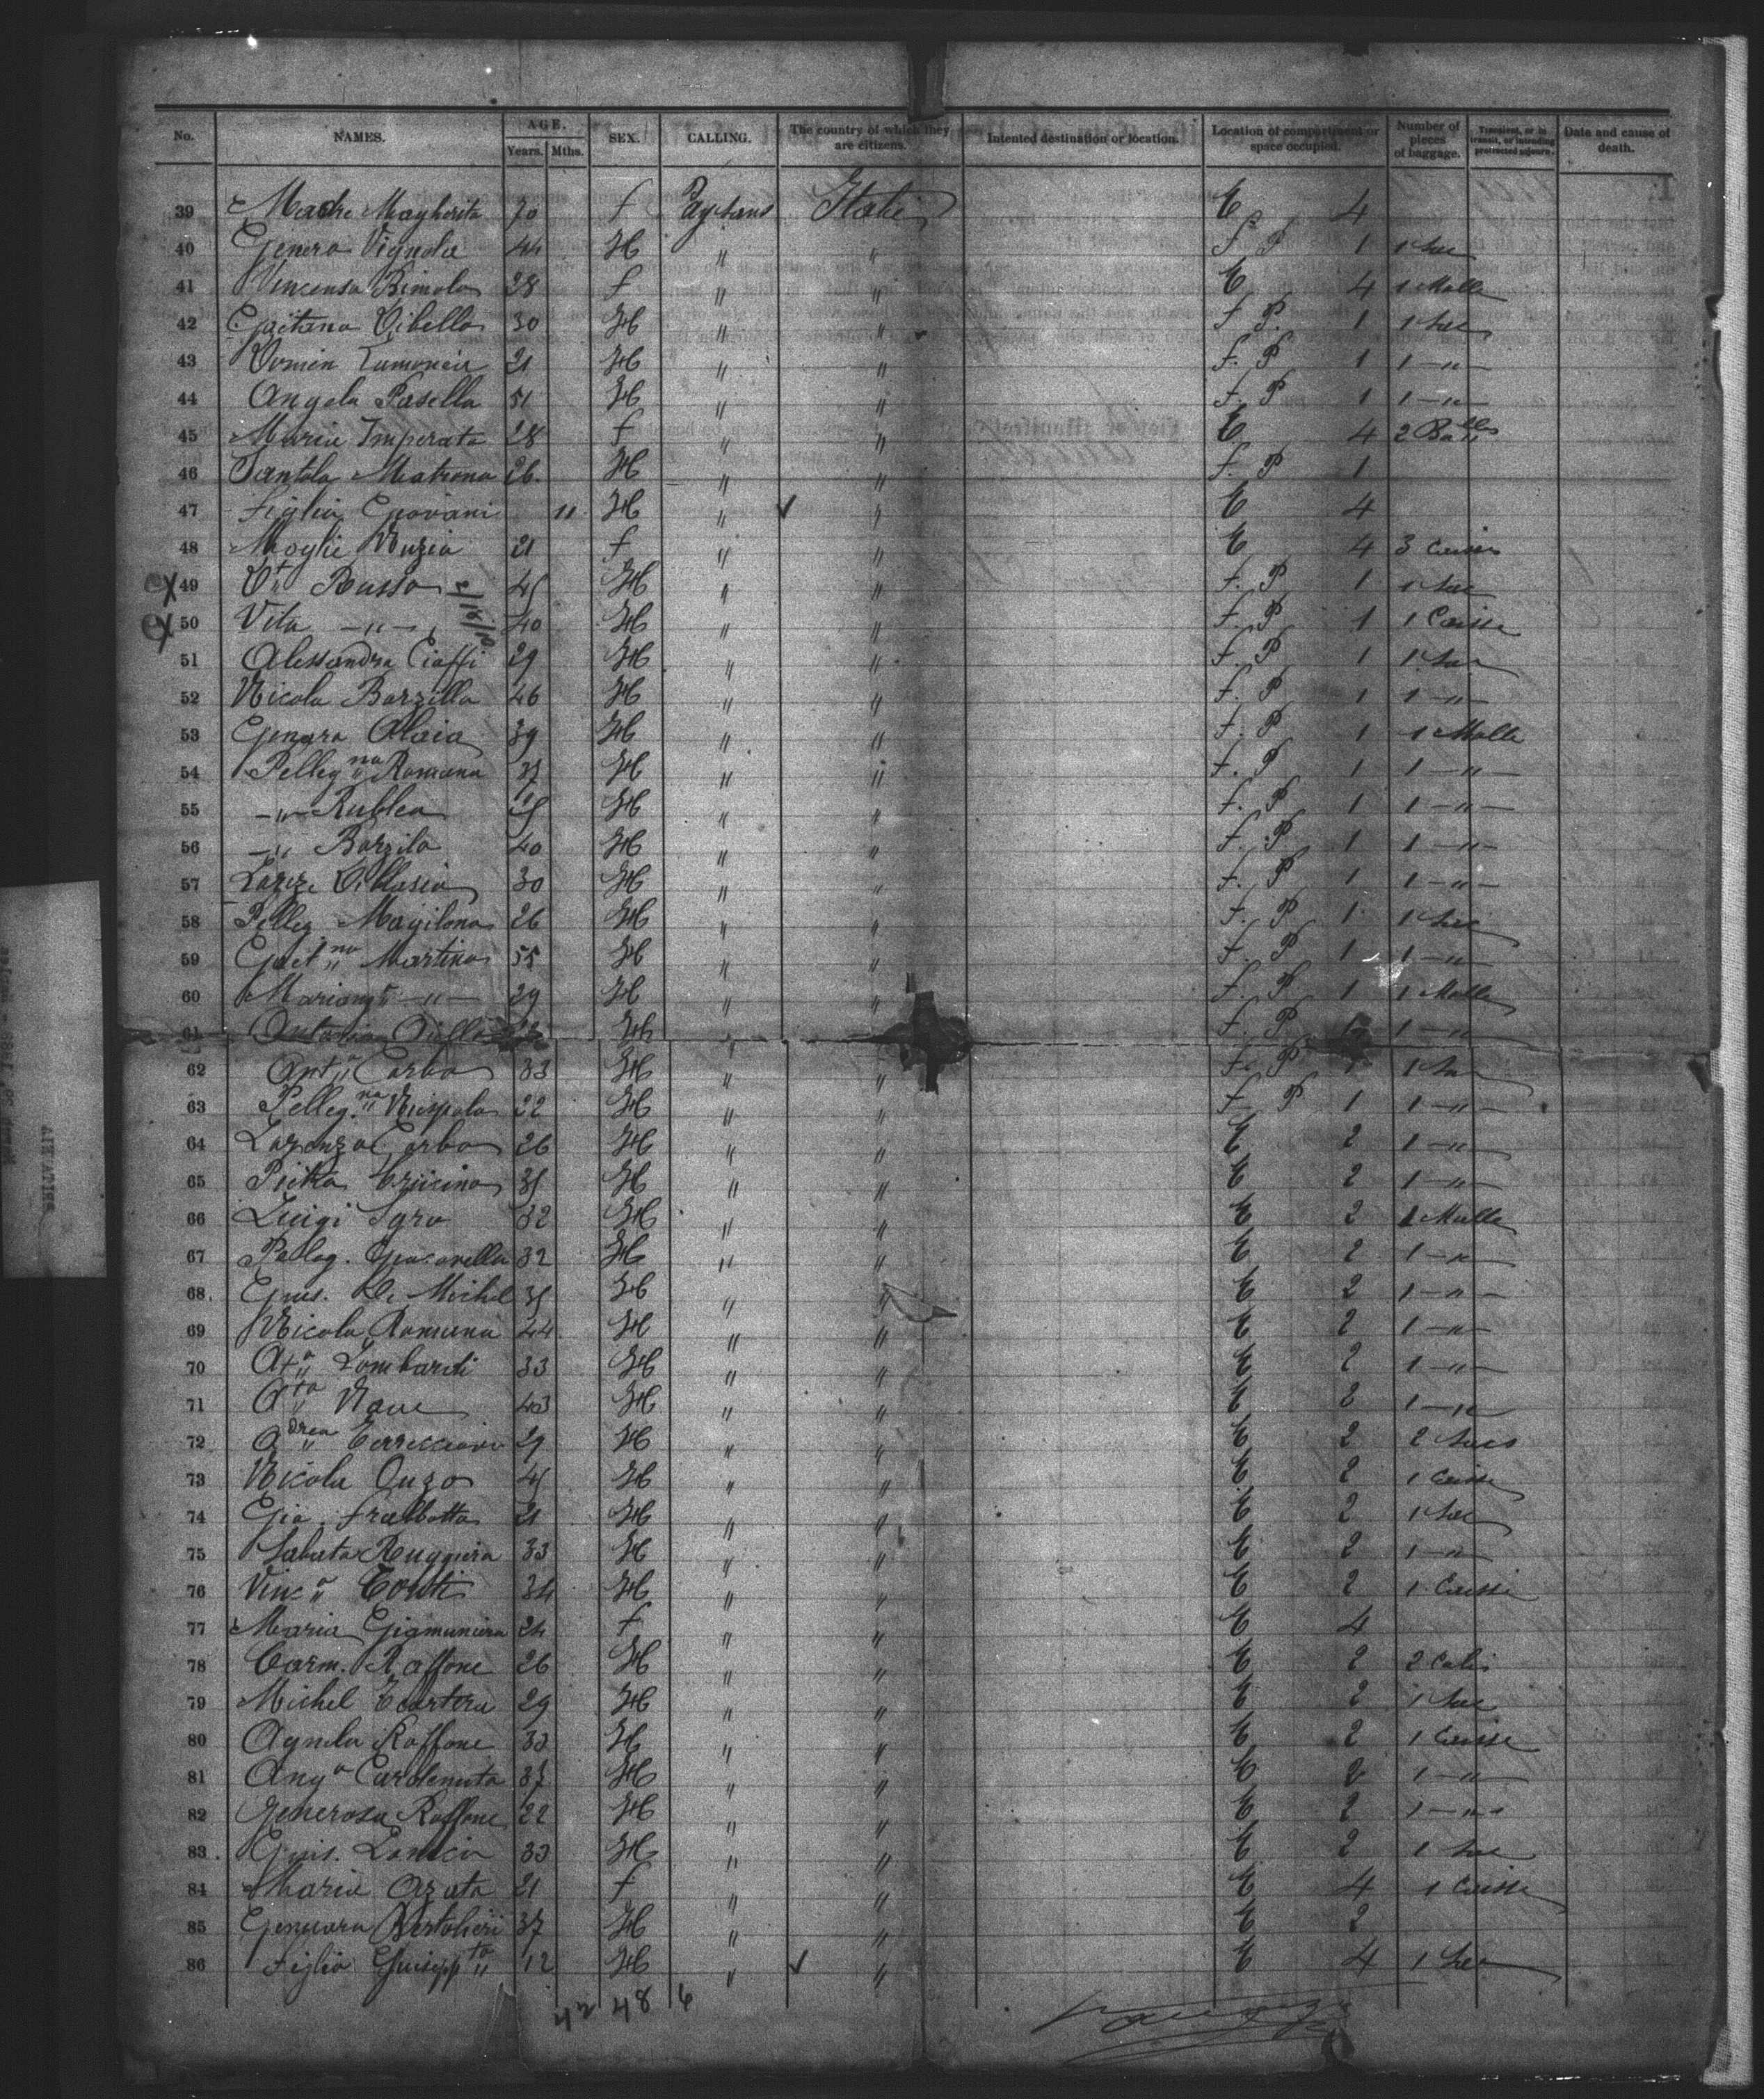 No. NAMES. AGE. Years. Mths. SEX. CALLING. The country of which they are citizens. Intented destination or location. Location of compartment or space occupied. Number of pieces of baggage. Transient, or in transit, or intending protracted sojourn. Date and cause of death.
39 Madre Magherita 70 f Paysans Italie E 4
40 Genero Vignola 44 H " " f. P 1 1 Sac
41 Vincensa Rimola 28 f " " E 4 1 Malle
42 Gaëtano Vibello 30 H " " f P. 1 1 Sac
43 21 H " " f. P 1 1 -"-
44 Angelo Pasella 51 H " " f. P 1 1 -"-
45 Maria Imperato 28 f " " E 4 2 Balles
46 Santola Matrona 26 H " " f. P 1
47 Figlia Giovani 11 H " " E 4
48 Moglie Nuzia 21 f " " E 4 3 Caisses
49 Russo 45 H " " f. P 1 1 Sac
50 Vito -"- 40 H " " f. P 1 1 Caisse
51 Alessandra Ciaffi 29 H " " f. P 1 1 Sac
52 Nicola Barzilla 46 H " " f. P 1 1 -"-
53 Genara Olaia 39 H " " f. P 1 1 Malle
54 Pelleg no Romano 37 H " " f. P 1 1 -"-
55 -"- Rubleo H " " f. P 1 1 -"-
56 -"- Barzilo 40 H " " f. P 1 1 -"-
57 30 H " " f. P 1 1 -"-
58 Pelleg. Magilona 26 H " " f. P 1 1 Sac
59 Gaet no Martino 55 H " " f. P 1 1 -"-
60 -"- 29 H " " f. P 1 1 Malle
61 Antonio H " f. P 1 1 -"-
62 Ant o Carbo 33 H " " f. P 1 1 Sac
63 Pelleg. no Nuspolo 22 H " " f P 1 1 -"-
64 Lorenzo Carbo 26 H " " E 2 1 -"-
65 35 H " " E 2 1 -"-
66 Luigi Sgro 32 H " " E 2 1 Malle
67 Peleg. 32 H " " E 2 1 -"-
68. Gius. De Michel 35 H " " E 2 1 -"-
69 Nicola Romano 44 H " " E 2 1 -"-
70 At o Lombardi 33 H " " E 2 1 -"-
71 A to Nave 43 H " " E 2 1 -"-
72 A drea 29 H " " E 2 2 Sacs
73 Nicola Ouzo 45 H " " E 2 1 Caisse
74 Gio. Fralbotto 21 H " " E 2 1 Sac
75 Sabato Ruggiera 33 H " " E 2 1 -"-
76 Vinc o Conti 34 H " " E 2 1 Caisse
77 Maria Giamuniera 24 f " " E 4
78 Carm. Raffone 26 H " " E 2 2 Colis
79 Michel 29 H " " E 2 1 Sac
80 Agnelo Raffone 33 H " " E 2 1 Caisse
81 Ang o Carotenuto 37 H " " E 2 1 -"-
82 Generoso Raffone 22 H " " E 2 1 -"-
83. Gius. 33 H " " E 2 1 Sac
84 Maria Azato 21 f " " E 4 1 Caisse
85 Genuaro Bertolieri 37 H " " E 2
86 Figlio Guisepp to 12 H " " E 4 1 Sac
42 48 6